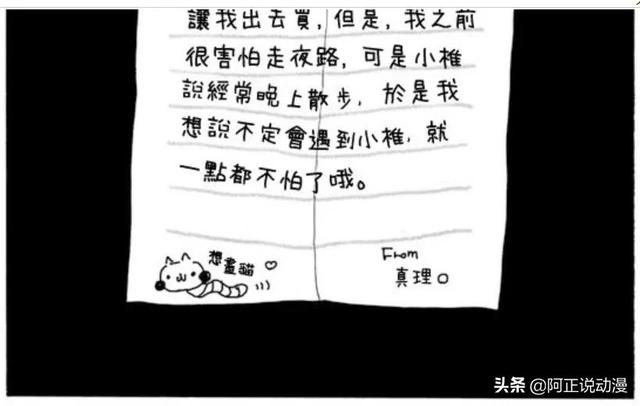 讓我出去買，但是，我之前
很害怕走夜路，可是小椎
說經常晚上散步，於是我
想說不定會遇到小椎，就
一點都不怕了哦。
想畫貓
From
真理
头条 @阿正说动漫